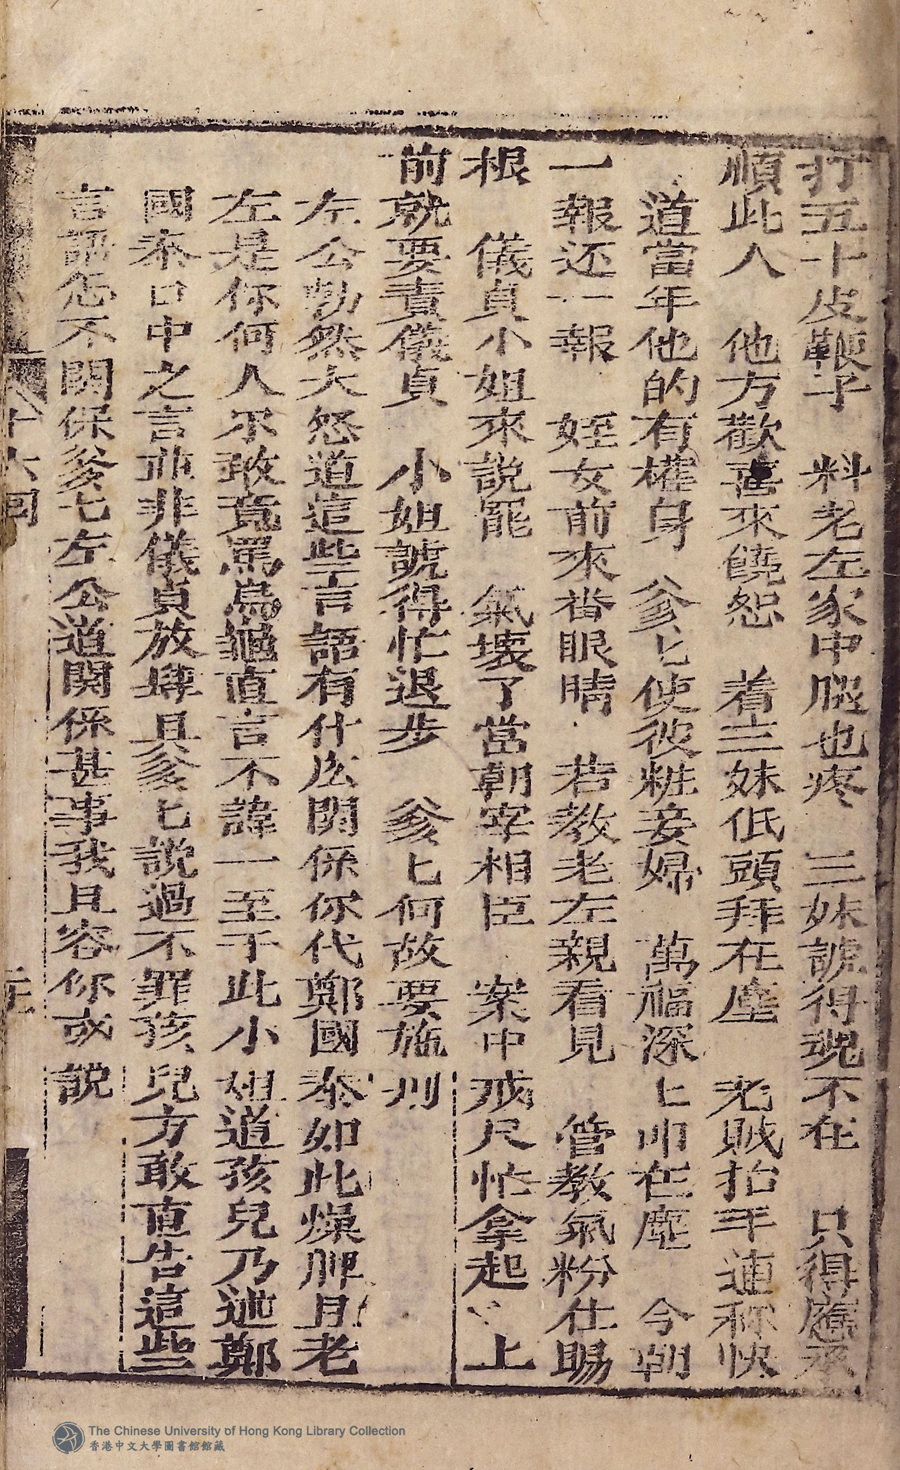 打五十皮鞭子　料老左家中腿也疼　三妹諕得魂不在　只得應承
順此人　他方歡喜來饒恕　着三妹低頭拜在塵　老賊抬手連称快
道當年他的有權身　爹匕使彼粧妾婦　萬福深匕叩在塵　今朝
一報还一報　姪女前來畨眼睛　若教老左親看見　管教氣粉仕賜
根　儀貞小姐來說罷　氣壞了當朝宰相臣　案中戒尺忙拿起　上
前就要責儀貞　小姐諕得忙退步　爹匕何故要施刑
左公勃然大怒道這些言語有什庅関係你代鄭國泰如此燥脾且老
左是你何人不敢竟罵烏龜直言不諱一至于此小姐道孩兒乃述鄭
國泰口中之言並非儀貞放肆且爹匕說過不罪孩兒方敢直告這些
言語怎不関係爹匕左公道関係甚事我且容你或說
十六回
The Chinese University of Hong Kong Library Collection
香港中文大學圖書館館藏